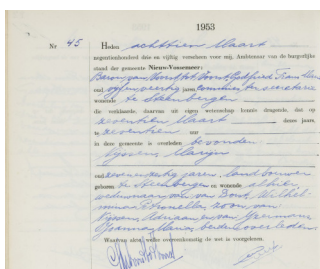 1953
Nr 45 Heden achttien Maart
negentienhonderd drie en vijftig verscheen voor mij, Ambtenaar van de burgerlijke
stand der gemeente Nieuw-Vossemeer:
Baron van Voorst tot Voorst, Godfried Frans
oud vijfenveertig jaren commies ter secretarie
wonende te Steenbergen
die verklaarde, daarvan uit eigen wetenschap kennis dragende, dat op
zeventien Maart dezes jaars,
te zeventien uur
in deze gemeente is overleden bevonden
Nijssens Marijn
oud zevenenzestig jaren, landbouwer
geboren te Steenbergen en wonende alhier
weduwnaar van van Dorst, Wilhel-
mina Petronella, zoon van
Nijssens Adriaan en van
Joanna Maria, beiden overleden.
Waarvan akte, welke overeenkomstig de wet is voorgelezen.